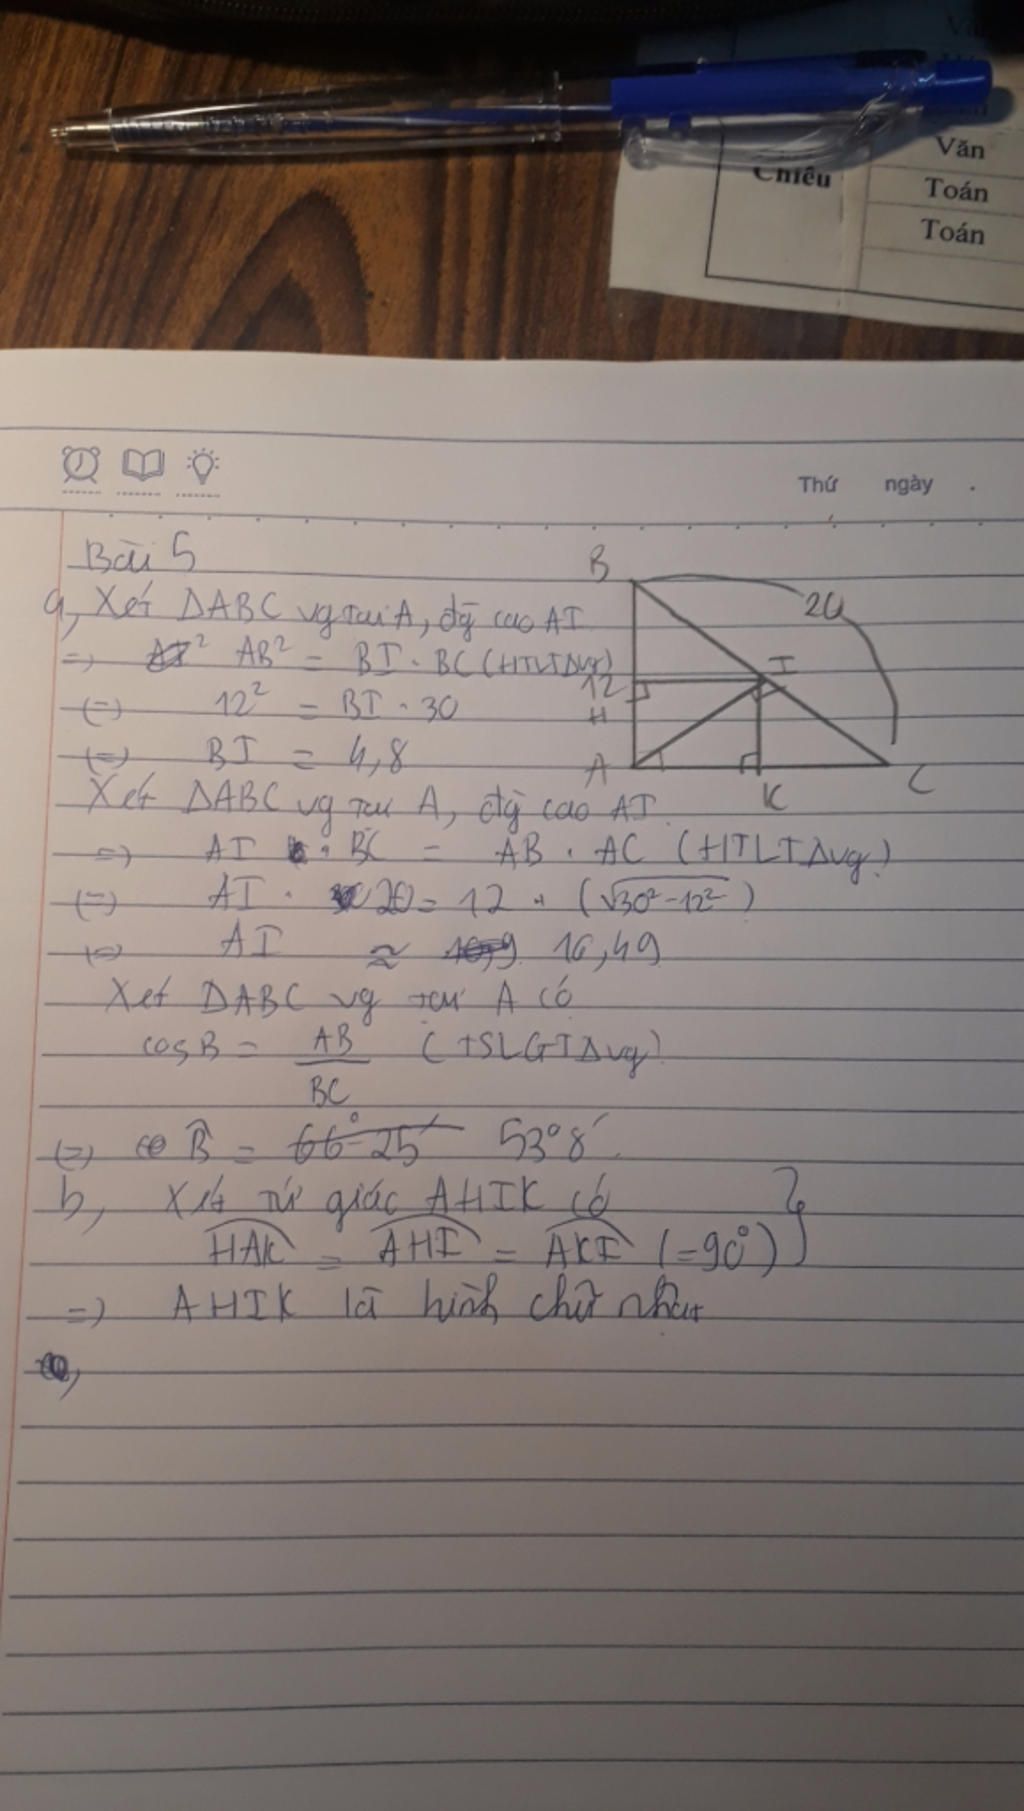 Văn
Chiều
Toán
Toán
Thứ ngày .
Bài 5
a, Xét ΔABC vg tại A, đg cao AI
=> AB² = BI . BC (HTLTΔvg)
(=) 12² = BI . 30
(=) BI = 4,8
Xét ΔABC vg tại A, đg cao AI
=> AI . BC = AB . AC (HTLTΔvg)
(=) AI . 20 = 12 . (√30²-12²)
(=) AI ≈ 16,49
Xét ΔABC vg tại A có
cosB = AB/BC (TSLGTΔvg)
(=) B̂ = 53°8'
b, Xét tứ giác AHIK có
HAK = AHI = AKI (=90°) }
=> AHIK là hình chữ nhật
B
20
12
I
H
A
K
C